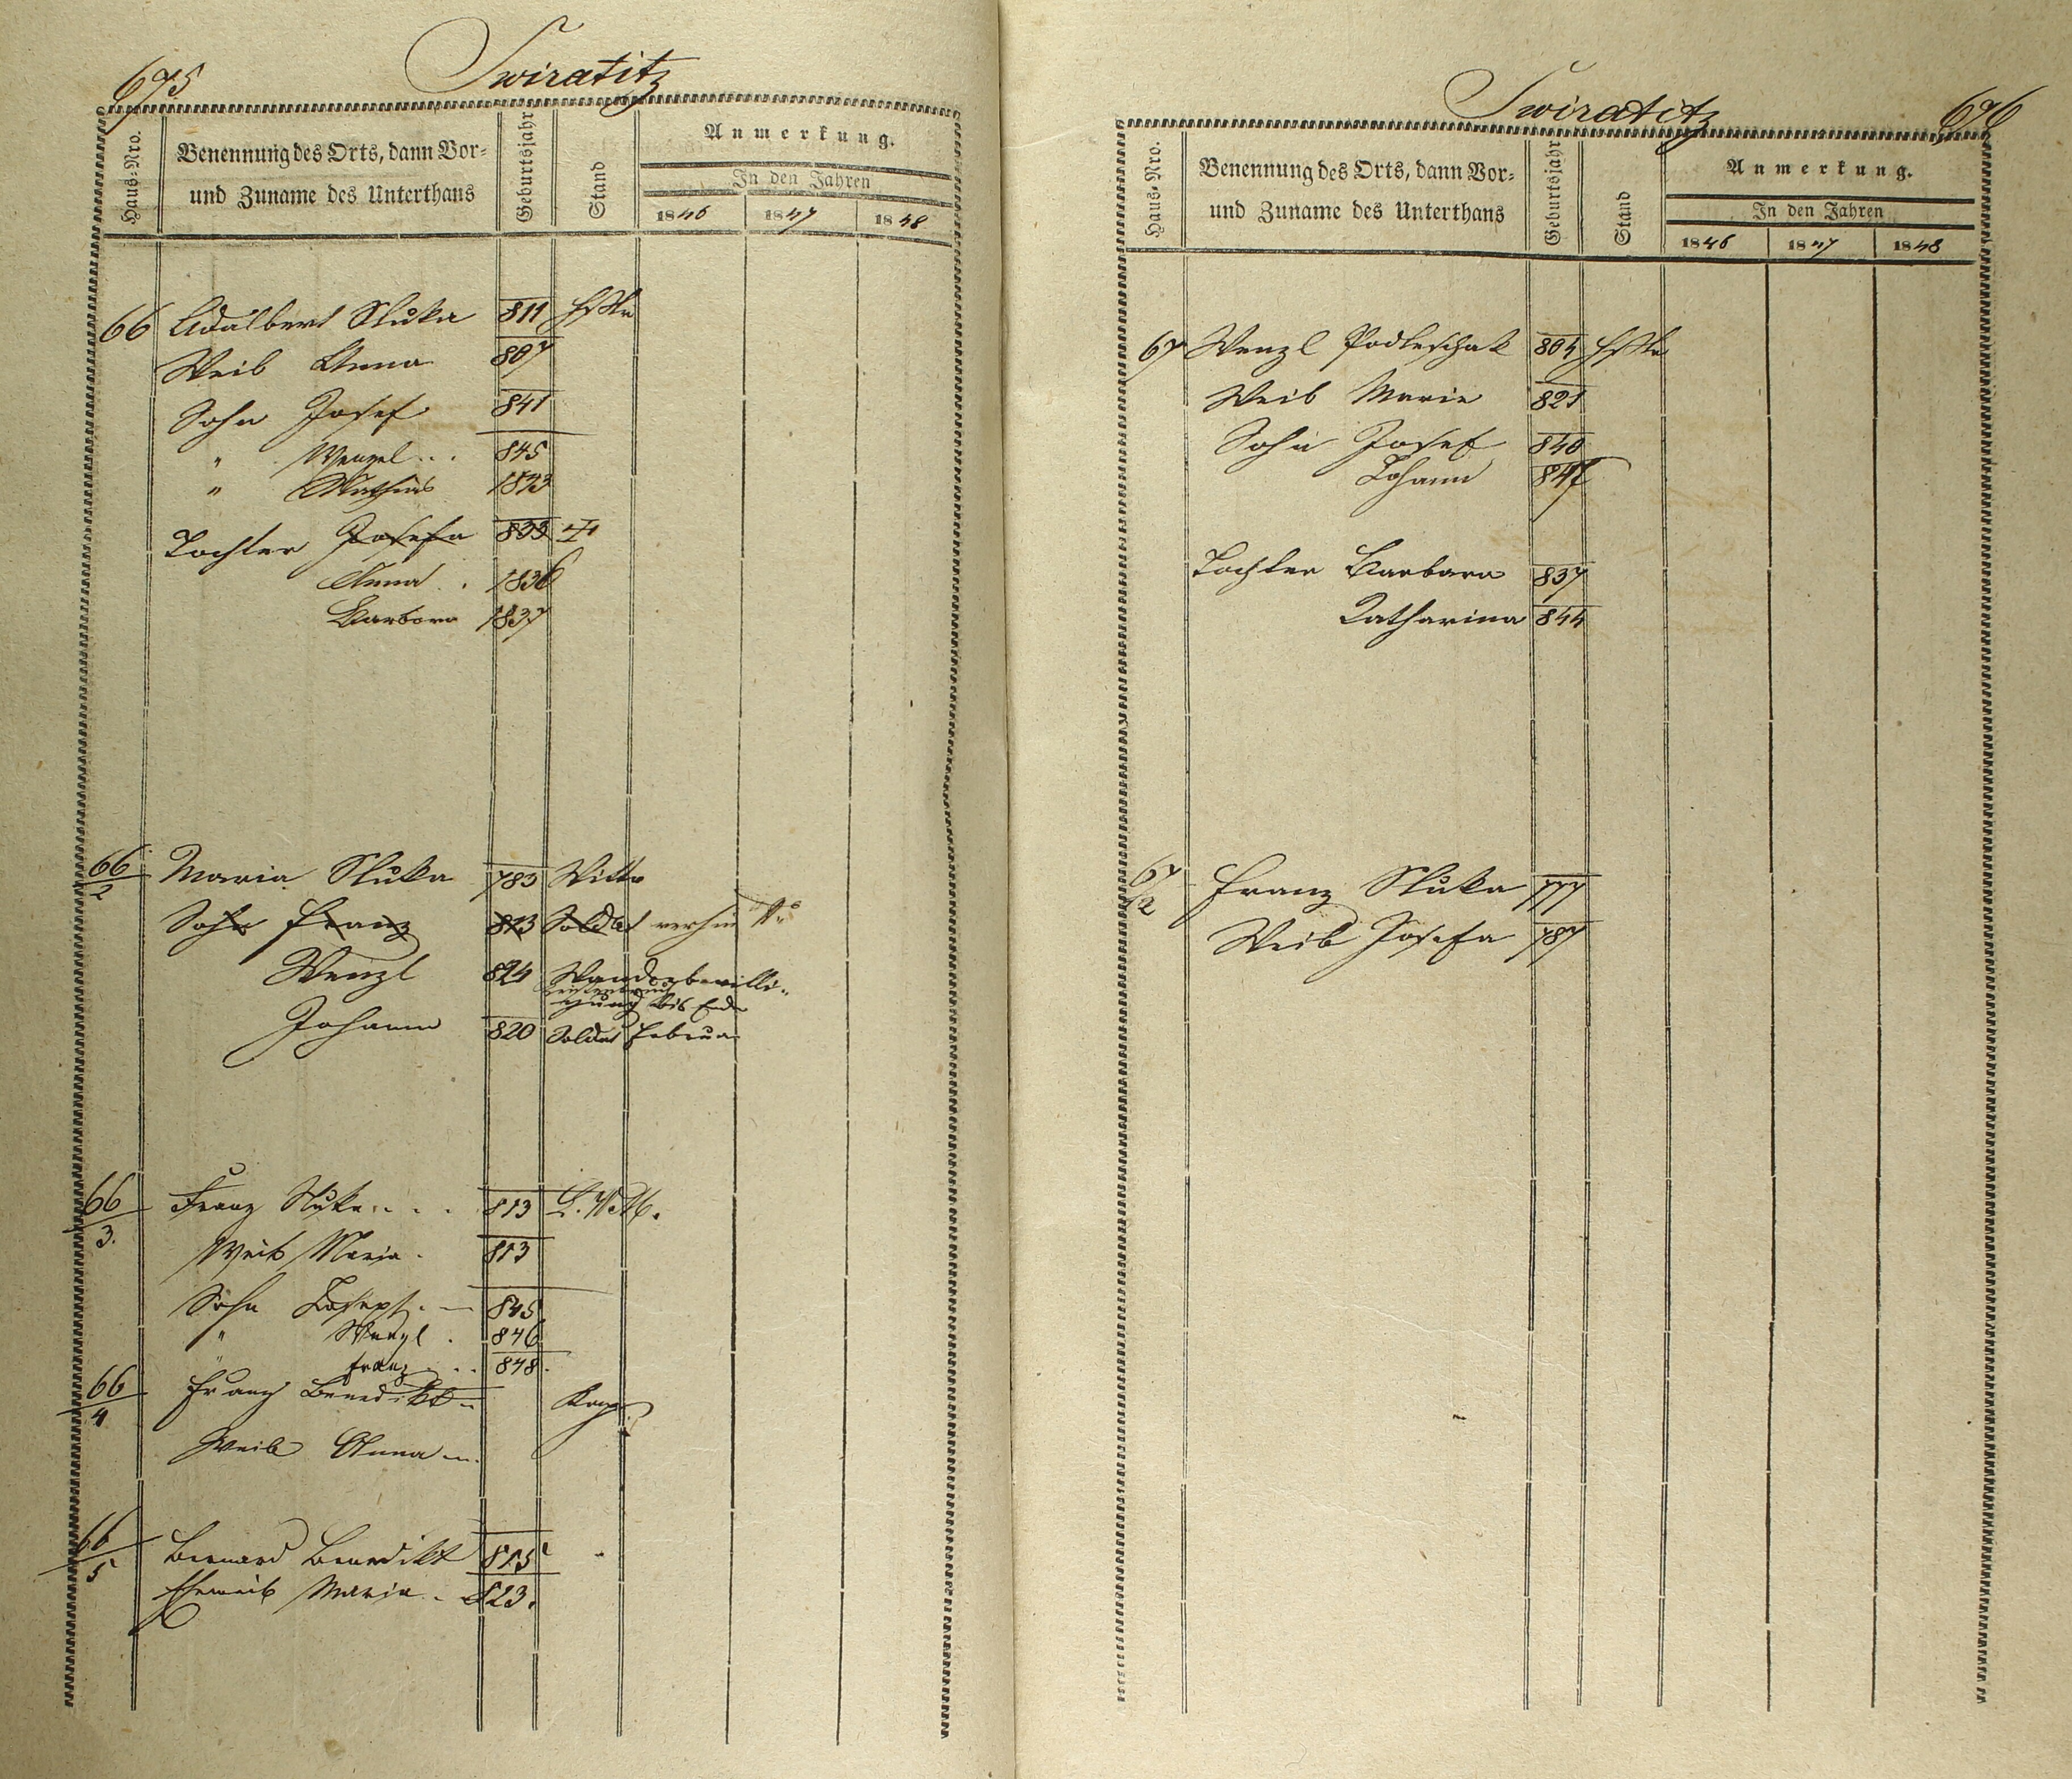 695
Swiratitz
Haus-Nro.
Benennung des Orts, dann Vor-
und Zuname des Unterthans
Geburtsjahr
Stand
Anmerkung.
In den Jahren
1846 1847 1848
66 Adalbert Sluka 811
Weib Anna 807
Sohn Josef 841
" Wenzel .. 845
" Mathias 1843
Tochter Josefa 833
Anna . 1836
Barbora 1837
66/2 Maria Sluka 783 Witte
Sohn Franz 813 Soldat
Wenzl 824 Wanderbewilli-
gung bis Ende
Johann 820 Soldat Februar
66/3. Franz Sluka .. . . 813
Weib Maria . 813
Sohn Joseph . — 845
" Wenzl . 846
" Franz . .. 848.
66/4 Franz Benedikt
Weib Anna
66/5 Bernard Benedikt 815
Eheweib Maria . 823.
696
Swiratitz
Haus-Nro.
Benennung des Orts, dann Vor-
und Zuname des Unterthans
Geburtsjahr
Stand
Anmerkung.
In den Jahren
1846 1847 1848
67 Wenzl Podleschak 804
Weib Marie 821
Sohn Josef 840
Johann 847
Tochter Barbara 837
Katharina 844
67/2 Franz Sluka 777
Weib Josefa 787